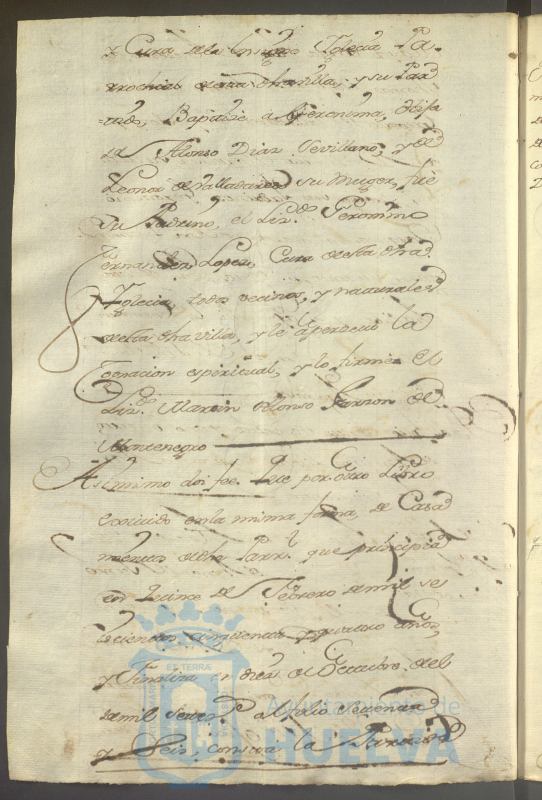 y Cura de la Insigne Iglecia Pa-
rrochial de esta dha villa, y su Par
-tido, Baptize a Geronima, hija
Alonso Diaz Sevillano, y de
Leonor de Valladares su Muger, fue
su Padrino, el Lizdo. Geronimo
Fernandez Lopez, Cura de esta dha
Iglecia, todos vecinos, y naturales
de esta dha villa, y le aperzevi la
cognacion espiritual, y lo firme el
Lizdo. Martin Alonso Garzon de
Montenegro
Asimimo doi fee. Que por otro Libro
en la misma forma, de Casa
mientos de dha Parrl. que principia
en Quince de Febrero de mil se
tecientos cinquenta y quatro años,
y Finaliza en diez de Octubre, del
de mil seten al folio Setenta
y Seis, consta la Partida
Ayuntamiento de
HUELVA